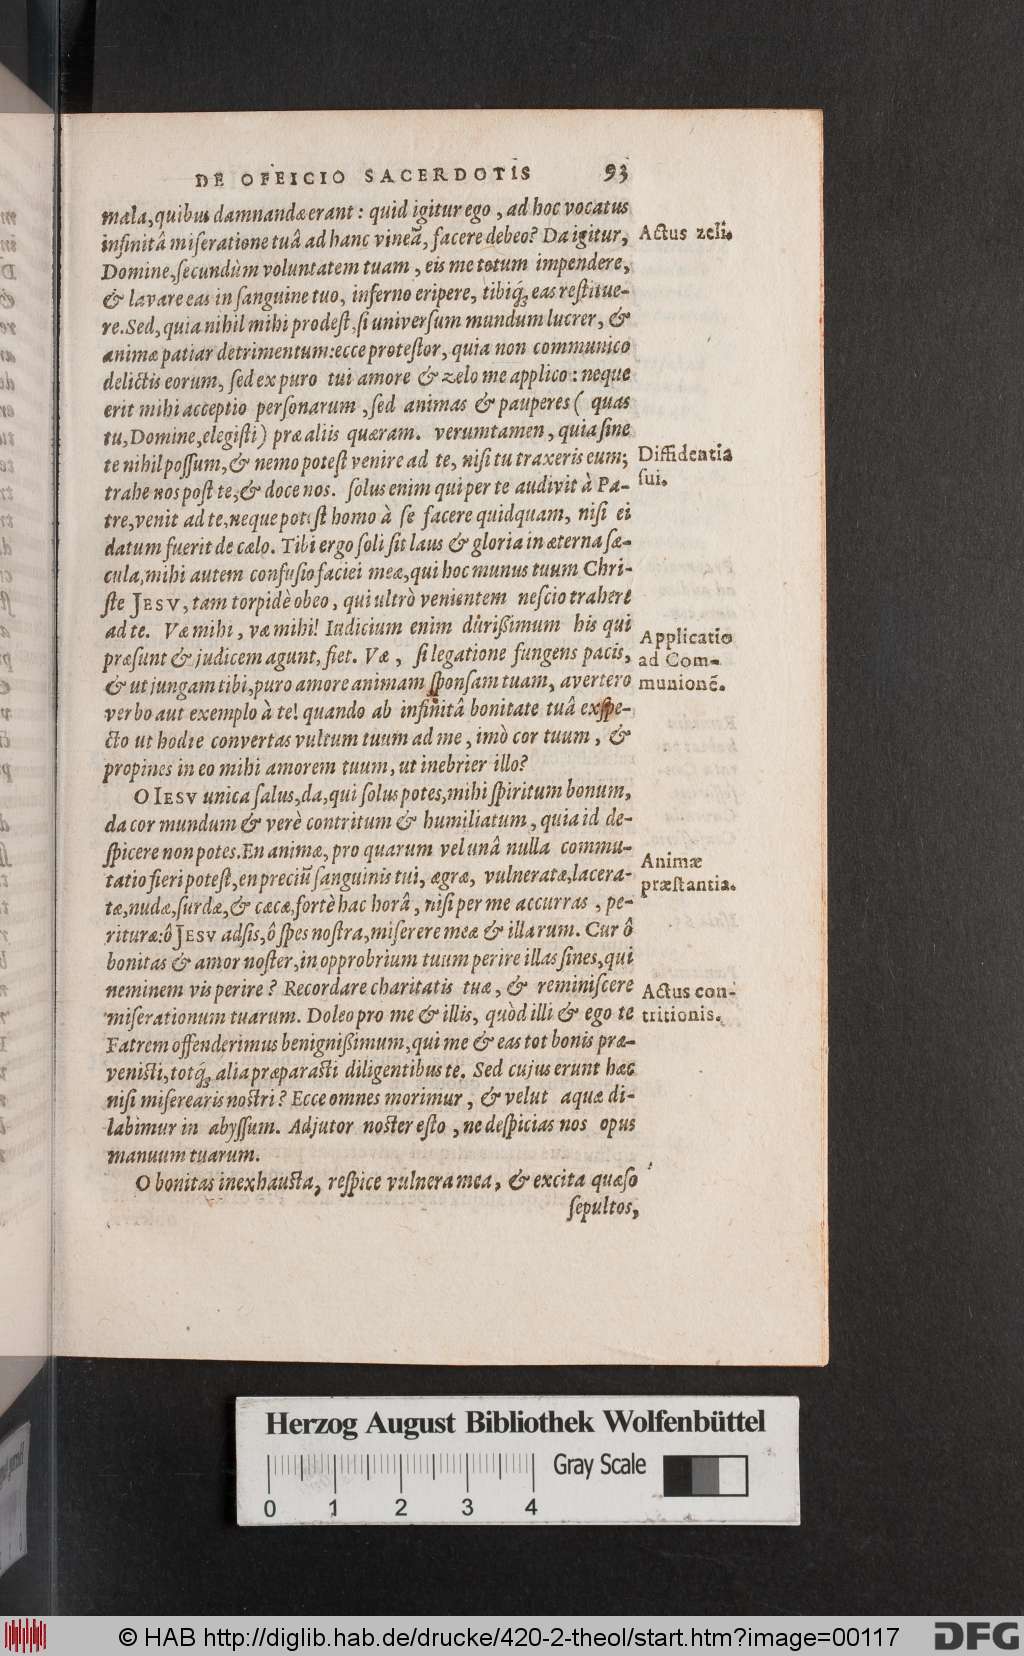 DE OFFICIO SACERDOTIS 93
mala, quibus damnandæ erant : quid igitur ego , ad hoc vocatus
infinitâ miseratione tuâ ad hanc vineã, facere debeo? Da igitur,
Actus zeli.
Domine, secundùm voluntatem tuam , eis me totum impendere,
& lavare eas in sanguine tuo, inferno eripere, tibiq́; eas restitue-
re. Sed, quia nihil mihi prodest, si universum mundum lucrer, &
animæ patiar detrimentum: ecce protestor, quia non communico
delictis eorum, sed ex puro tui amore & zelo me applico : neque
erit mihi acceptio personarum , sed animas & pauperes ( quas
tu, Domine, elegisti) præ aliis quæram. verumtamen, quia sine
te nihil possum, & nemo potest venire ad te, nisi tu traxeris eum;
Diffidentia
sui.
trahe nos post te, & doce nos. solus enim qui per te audivit à Pa-
tre, venit ad te, neque potest homo à se facere quidquam, nisi ei
datum fuerit de cælo. Tibi ergo soli sit laus & gloria in æterna sæ-
cula, mihi autem confusio faciei meæ, qui hoc munus tuum Chri-
ste JESV, tam torpidè obeo, qui ultrò venientem nescio trahere
ad te. Væ mihi, væ mihi! Iudicium enim durißimum his qui
Applicatio
ad Com-
munionẽ.
præsunt & judicem agunt, fiet. Væ, si legatione fungens pacis,
& ut jungam tibi, puro amore animam sponsam tuam, avertero
verbo aut exemplo à te! quando ab infinitâ bonitate tuâ exspe-
cto ut hodie convertas vultum tuum ad me, imò cor tuum, &
propines in eo mihi amorem tuum, ut inebrier illo?
O IESV unica salus, da, qui solus potes, mihi spiritum bonum,
da cor mundum & verè contritum & humiliatum, quia id de-
spicere non potes. En animæ, pro quarum vel unâ nulla commu-
Animæ
præstantia.
tatio fieri potest, en preciũ sanguinis tui, ægræ, vulneratæ, lacera-
tæ, nudæ, surdæ, & cæcæ, fortè hac horâ, nisi per me accurras, pe-
rituræ: ô JESV adsis, ô spes nostra, miserere meæ & illarum. Cur ô
bonitas & amor noster, in opprobrium tuum perire illas sines, qui
neminem vis perire? Recordare charitatis tuæ, & reminiscere
Actus con-
tritionis.
miserationum tuarum. Doleo pro me & illis, quòd illi & ego te
Patrem offenderimus benignißimum, qui me & eas tot bonis præ-
venisti, totq́; alia præparasti diligentibus te. Sed cujus erunt hæc
nisi miserearis nostri? Ecce omnes morimur, & velut aquæ di-
labimur in abyssum. Adjutor noster esto, ne despicias nos opus
manuum tuarum.
O bonitas inexhausta, respice vulnera mea, & excita quæso
sepultos,
Herzog August Bibliothek Wolfenbüttel
Gray Scale
0 1 2 3 4
© HAB http://diglib.hab.de/drucke/420-2-theol/start.htm?image=00117
DFG